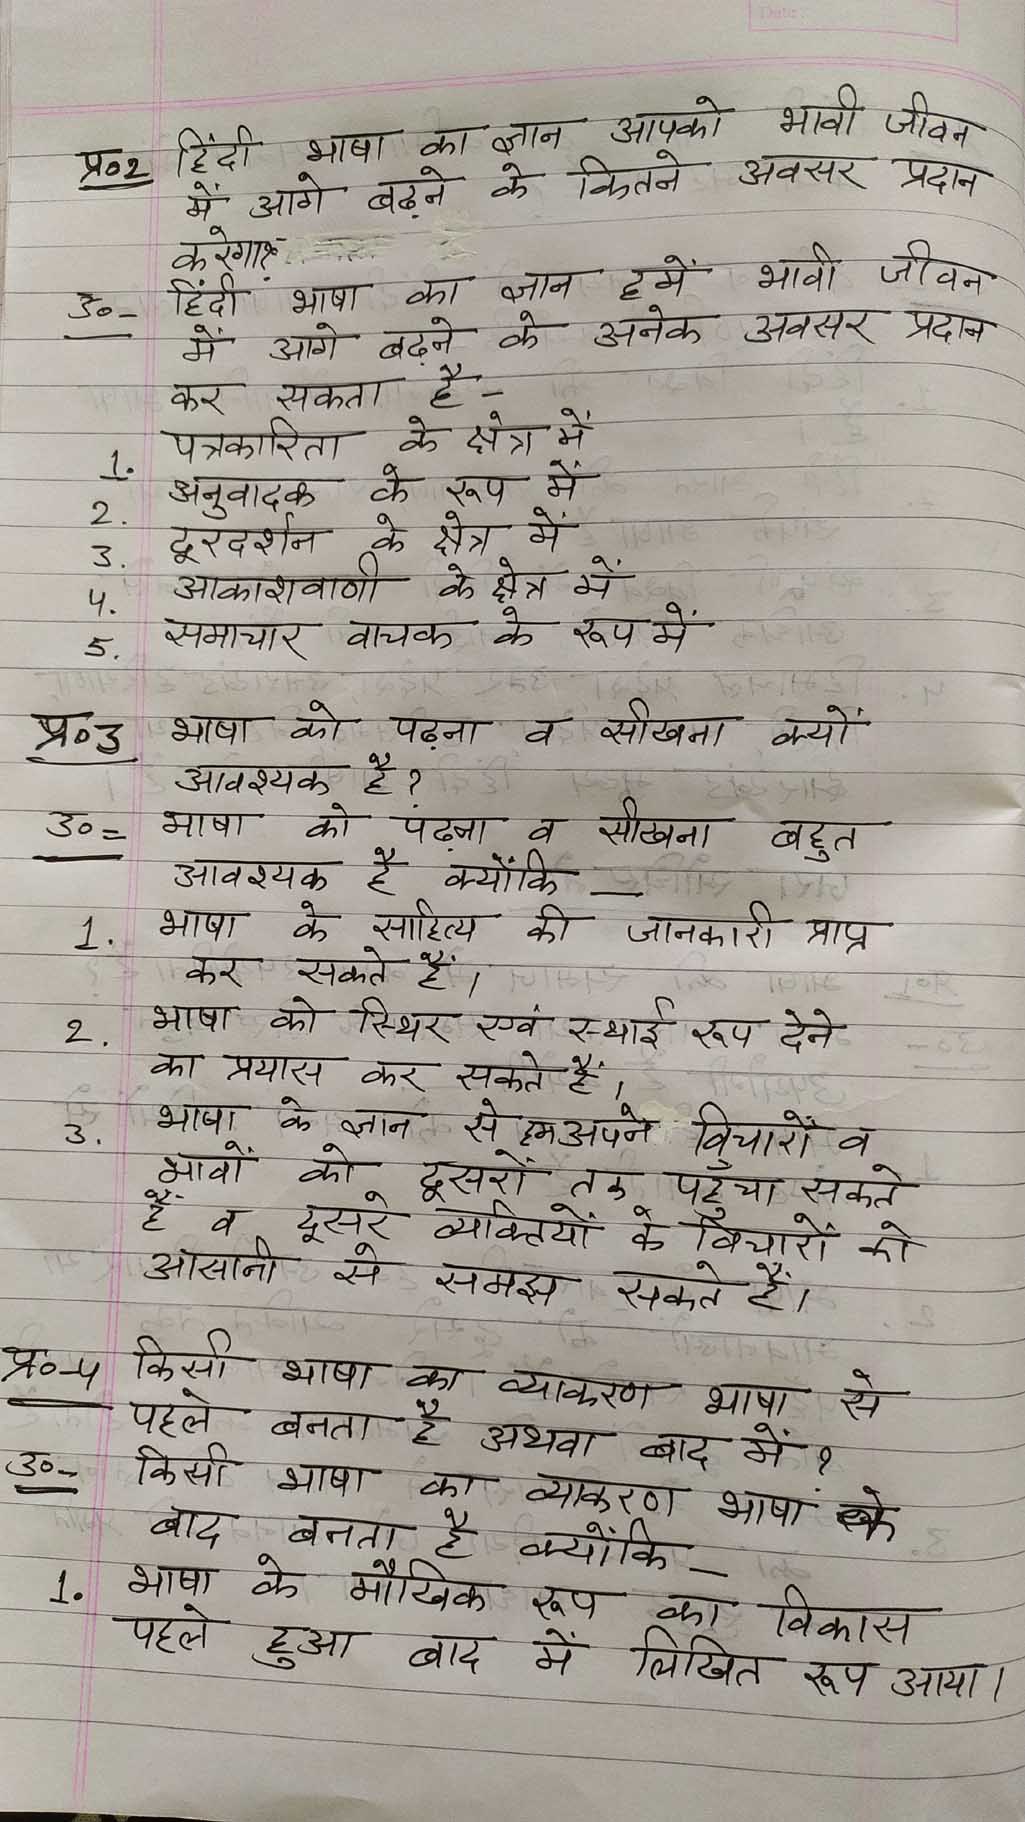 Date:
प्र०2 हिंदी भाषा का ज्ञान आपको भावी जीवन
में आगे बढ़ने के कितने अवसर प्रदान
करेगा?
उ०- हिंदी भाषा का ज्ञान हमें भावी जीवन
में आगे बढ़ने के अनेक अवसर प्रदान
कर सकता है -
1. पत्रकारिता के क्षेत्र में
2. अनुवादक के रूप में
3. दूरदर्शन के क्षेत्र में
4. आकाशवाणी के क्षेत्र में
5. समाचार वाचक के रूप में
प्र०3 भाषा को पढ़ना व सीखना क्यों
आवश्यक है?
उ०= भाषा को पढ़ना व सीखना बहुत
आवश्यक है क्योंकि —
1. भाषा के साहित्य की जानकारी प्राप्त
कर सकते हैं।
2. भाषा को स्थिर एवं स्थाई रूप देने
का प्रयास कर सकते हैं।
3. भाषा के ज्ञान से हम अपने विचारों व
भावों को दूसरों तक पहुँचा सकते
हैं व दूसरे व्यक्तियों के विचारों को
आसानी से समझ सकते हैं।
प्र०-4 किसी भाषा का व्याकरण भाषा से
पहले बनता है अथवा बाद में?
उ०- किसी भाषा का व्याकरण भाषा के
बाद बनता है क्योंकि —
1. भाषा के मौखिक रूप का विकास
पहले हुआ बाद में लिखित रूप आया।